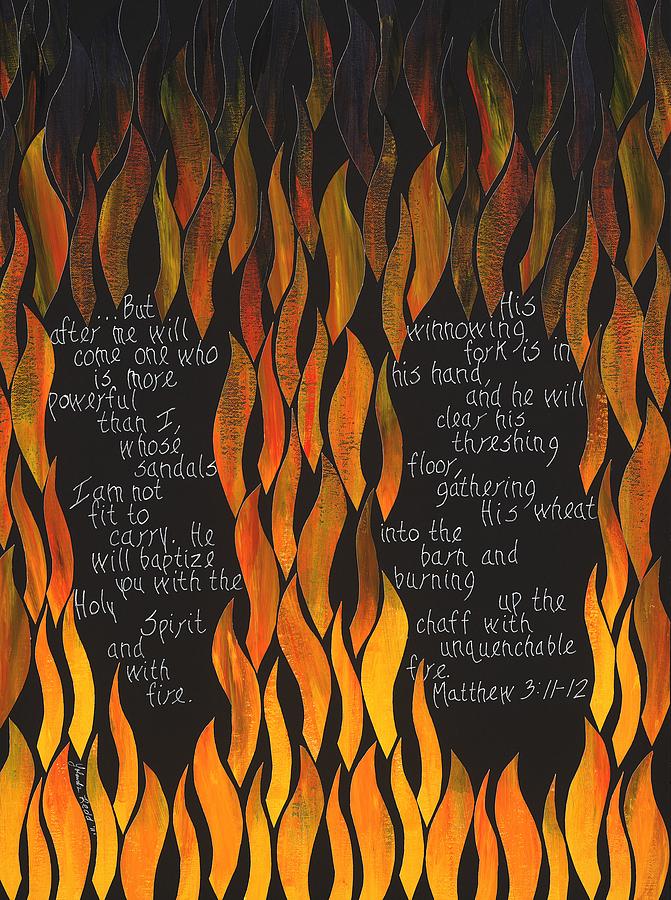 ...But
after me will
come one who
is more
powerful
than I,
whose
sandals
I am not
fit to
carry. He
will baptize
you with the
Holy
Spirit
and
with
fire.
His
winnowing
fork is in
his hand,
and he will
clear his
threshing
floor,
gathering
His wheat
into the
barn and
burning
up the
chaff with
unquenchable
fire.
Matthew 3:11-12